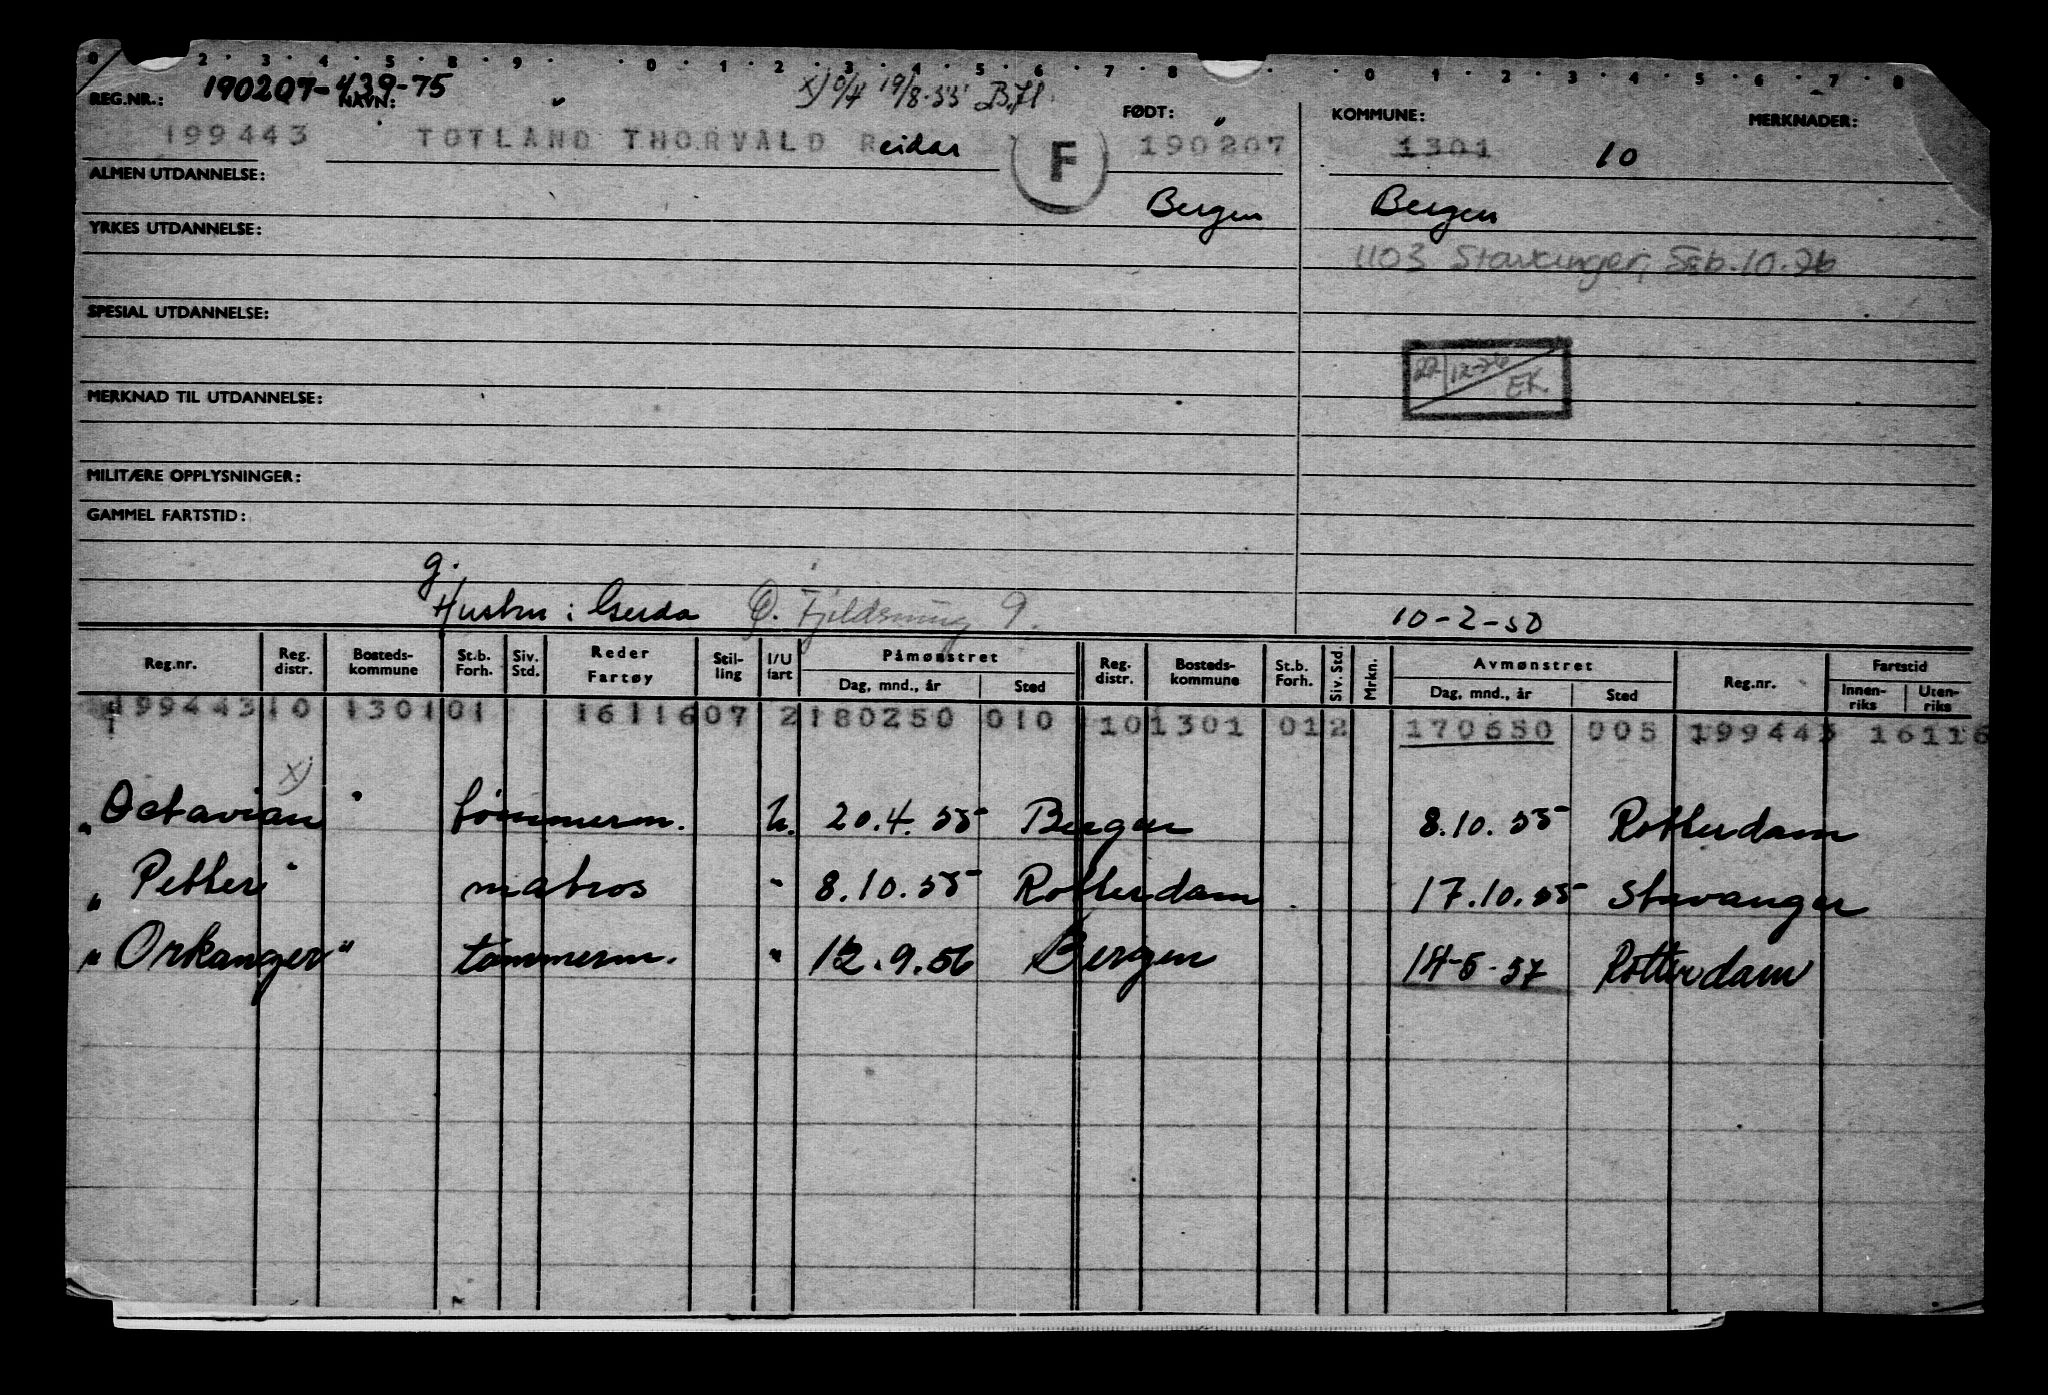 0 2 · 3 · 4 · 5 · 8 · 9 · · 0 · 1 · 2 · 3 · 4 · 5 · 6 · 7 · 8 · · 0 · 1 · 2 · 3 · 4 · 5 · 6 · 7 · 8
190207-439-75 x) 0/4 19/8-55 B.Jl.
REG.NR.: NAVN: FØDT: KOMMUNE: MERKNADER:
199443 TOTLAND THORVALD Reidar F 190207 1301 10
ALMEN UTDANNELSE:
Bergen Bergen
YRKES UTDANNELSE:
1103 Stavanger, Seb. 10.76
SPESIAL UTDANNELSE:
22/12-76 EK.
MERKNAD TIL UTDANNELSE:
MILITÆRE OPPLYSNINGER:
GAMMEL FARTSTID:
g.
Hustru: Gerda Ø. Fjeldsmug 9. 10-2-50
Reg.nr. Reg. distr. Bosteds-kommune St.b. Forh. Siv. Std. Reder Fartøy Stil-ling I/U fart Påmønstret Dag, mnd., år Sted Reg. distr. Bosteds-kommune St.b. Forh. Siv. Std. Mrkn. Avmønstret Dag, mnd., år Sted Reg.nr. Fartstid Innen-riks Uten-riks
199443 10 1301 01 16116 07 2 180250 010 10 1301 01 2 170650 005 199443 16116
x)
"Octavian" tømmerm. U. 20.4.55 Bergen 8.10.55 Rotterdam
"Petter" matros " 8.10.55 Rotterdam 17.10.55 Stavanger
"Orkanger" tømmerm. " 12.9.56 Bergen 14-5-57 Rotterdam